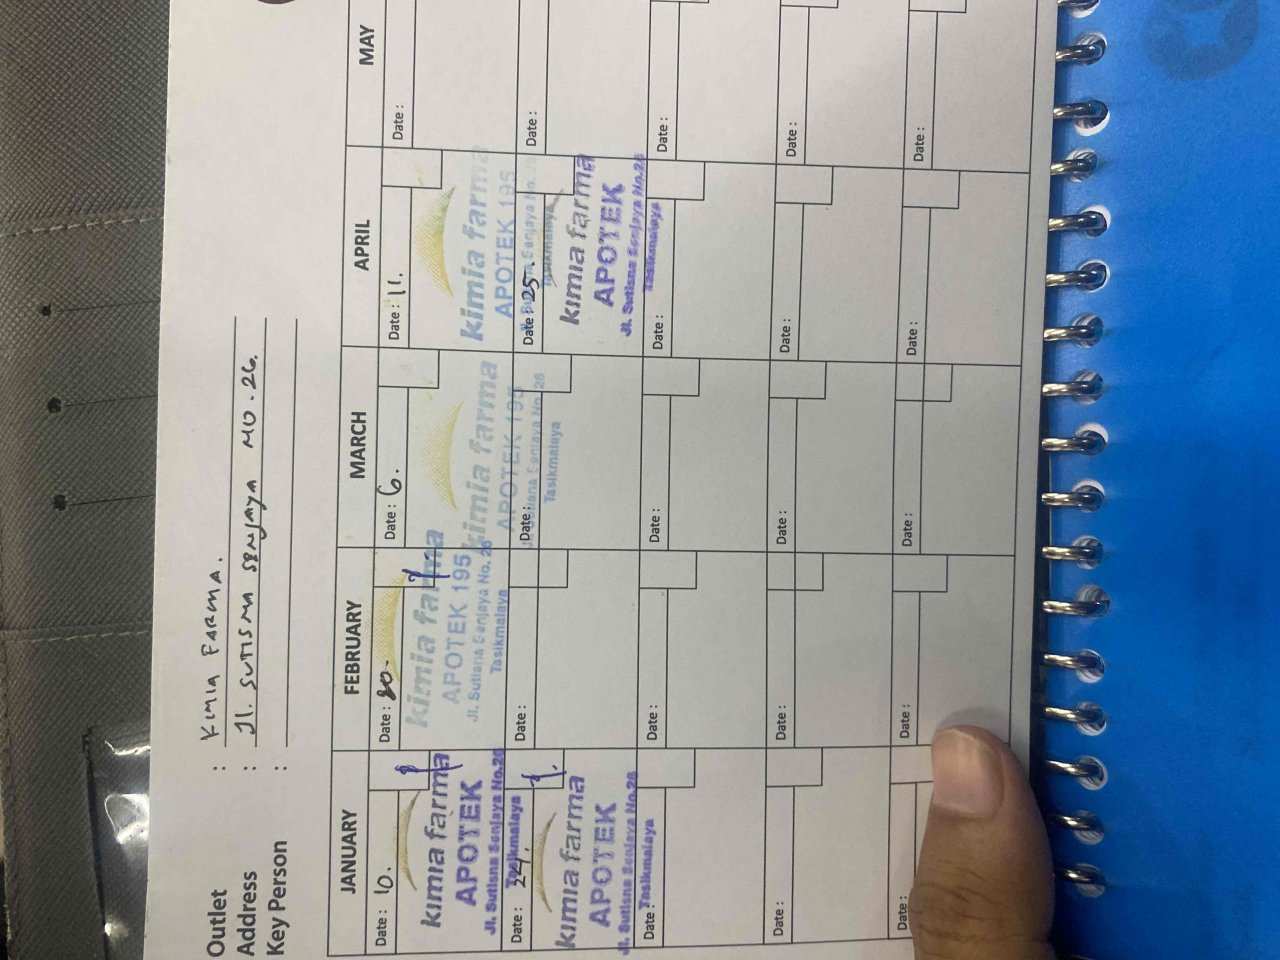 Outlet : KIMIA FARMA.
Address : Jl. SUTISNA SENJAYA NO. 26.
Key Person :
JANUARY FEBRUARY MARCH APRIL MAY
Date : 10. Date : 20. Date : 6. Date : 11. Date :
kimia farma kimia farma kimia farma kimia farma
APOTEK APOTEK 195 APOTEK 195 APOTEK 195
Jl. Sutisna Senjaya No.26 Jl. Sutisna Senjaya No. 26 Jl. Sutisna Senjaya No. 26 Jl. Sutisna Senjaya No. 26
Tasikmalaya Tasikmalaya Tasikmalaya Tasikmalaya
Date : 24. Date : Date : Date : 25. Date :
kimia farma kimia farma
APOTEK APOTEK
Jl. Sutisna Senjaya No.26 Jl. Sutisna Senjaya No.26
Tasikmalaya Tasikmalaya
Date : Date : Date : Date : Date :
Date : Date : Date : Date : Date :
Date : Date : Date : Date : Date :